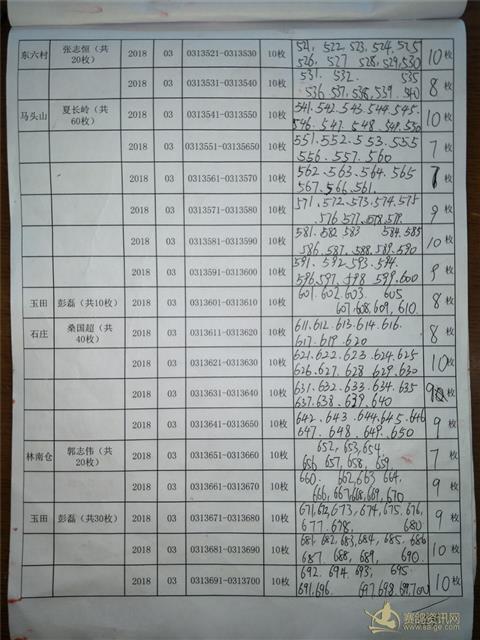 东六村 张志恒（共20枚） 2018 03 0313521-0313530 10枚 521, 522, 523, 524, 525 526, 527 528, 529, 530 10枚
2018 03 0313531-0313540 10枚 531. 532. 535 536, 537, 538, 539. 540 8枚
马头山 夏长岭（共60枚） 2018 03 0313541-0313550 10枚 541. 542. 543. 544. 545. 546. 547. 548. 549. 550 10枚
2018 03 0313551-03135650 10枚 551. 552. 553. 555 556. 557. 560 7枚
2018 03 0313561-0313570 10枚 562. 563. 564. 565 567. 566. 561. 7枚
2018 03 0313571-0313580 10枚 571. 572. 573. 574. 575 576 577. 578. 579. 9枚
2018 03 0313581-0313590 10枚 581. 582 583 584. 585 586. 587. 588. 589. 590 10枚
2018 03 0313591-0313600 10枚 591. 592. 593. 594. 596. 597. 598 599. 600 9枚
玉田 彭磊（共10枚） 2018 03 0313601-0313610 10枚 601. 602. 603. 605 607. 608. 609, 610. 8枚
石庄 桑国超（共40枚） 2018 03 0313611-0313620 10枚 611. 612. 613. 614. 616. 617. 619. 620 8枚
2018 03 0313621-0313630 10枚 621. 622. 623. 624. 625 626. 627. 628 629. 630 10枚
2018 03 0313631-0313640 10枚 631. 632. 633. 634. 635 637. 638. 639. 640 9枚
2018 03 0313641-0313650 10枚 642. 643. 644. 645. 646 647. 648. 649. 650 9枚
林南仓 郭志伟（共20枚） 2018 03 0313651-0313660 10枚 652, 653, 654. 656 657, 658, 659 7枚
2018 03 0313661-0313670 10枚 660. 662, 663 664, 666, 667, 668, 669, 670 9枚
玉田 彭磊（共30枚） 2018 03 0313671-0313680 10枚 671, 672, 673, 674, 675, 676, 677. 678. 680 9枚
2018 03 0313681-0313690 10枚 681. 682, 683, 684, 685. 686 687. 688, 689, 690. 10枚
2018 03 0313691-0313700 10枚 692. 694. 693, 695. 691, 696. 697. 698. 699. 700 10枚
赛鸽资讯网
www.saige.com